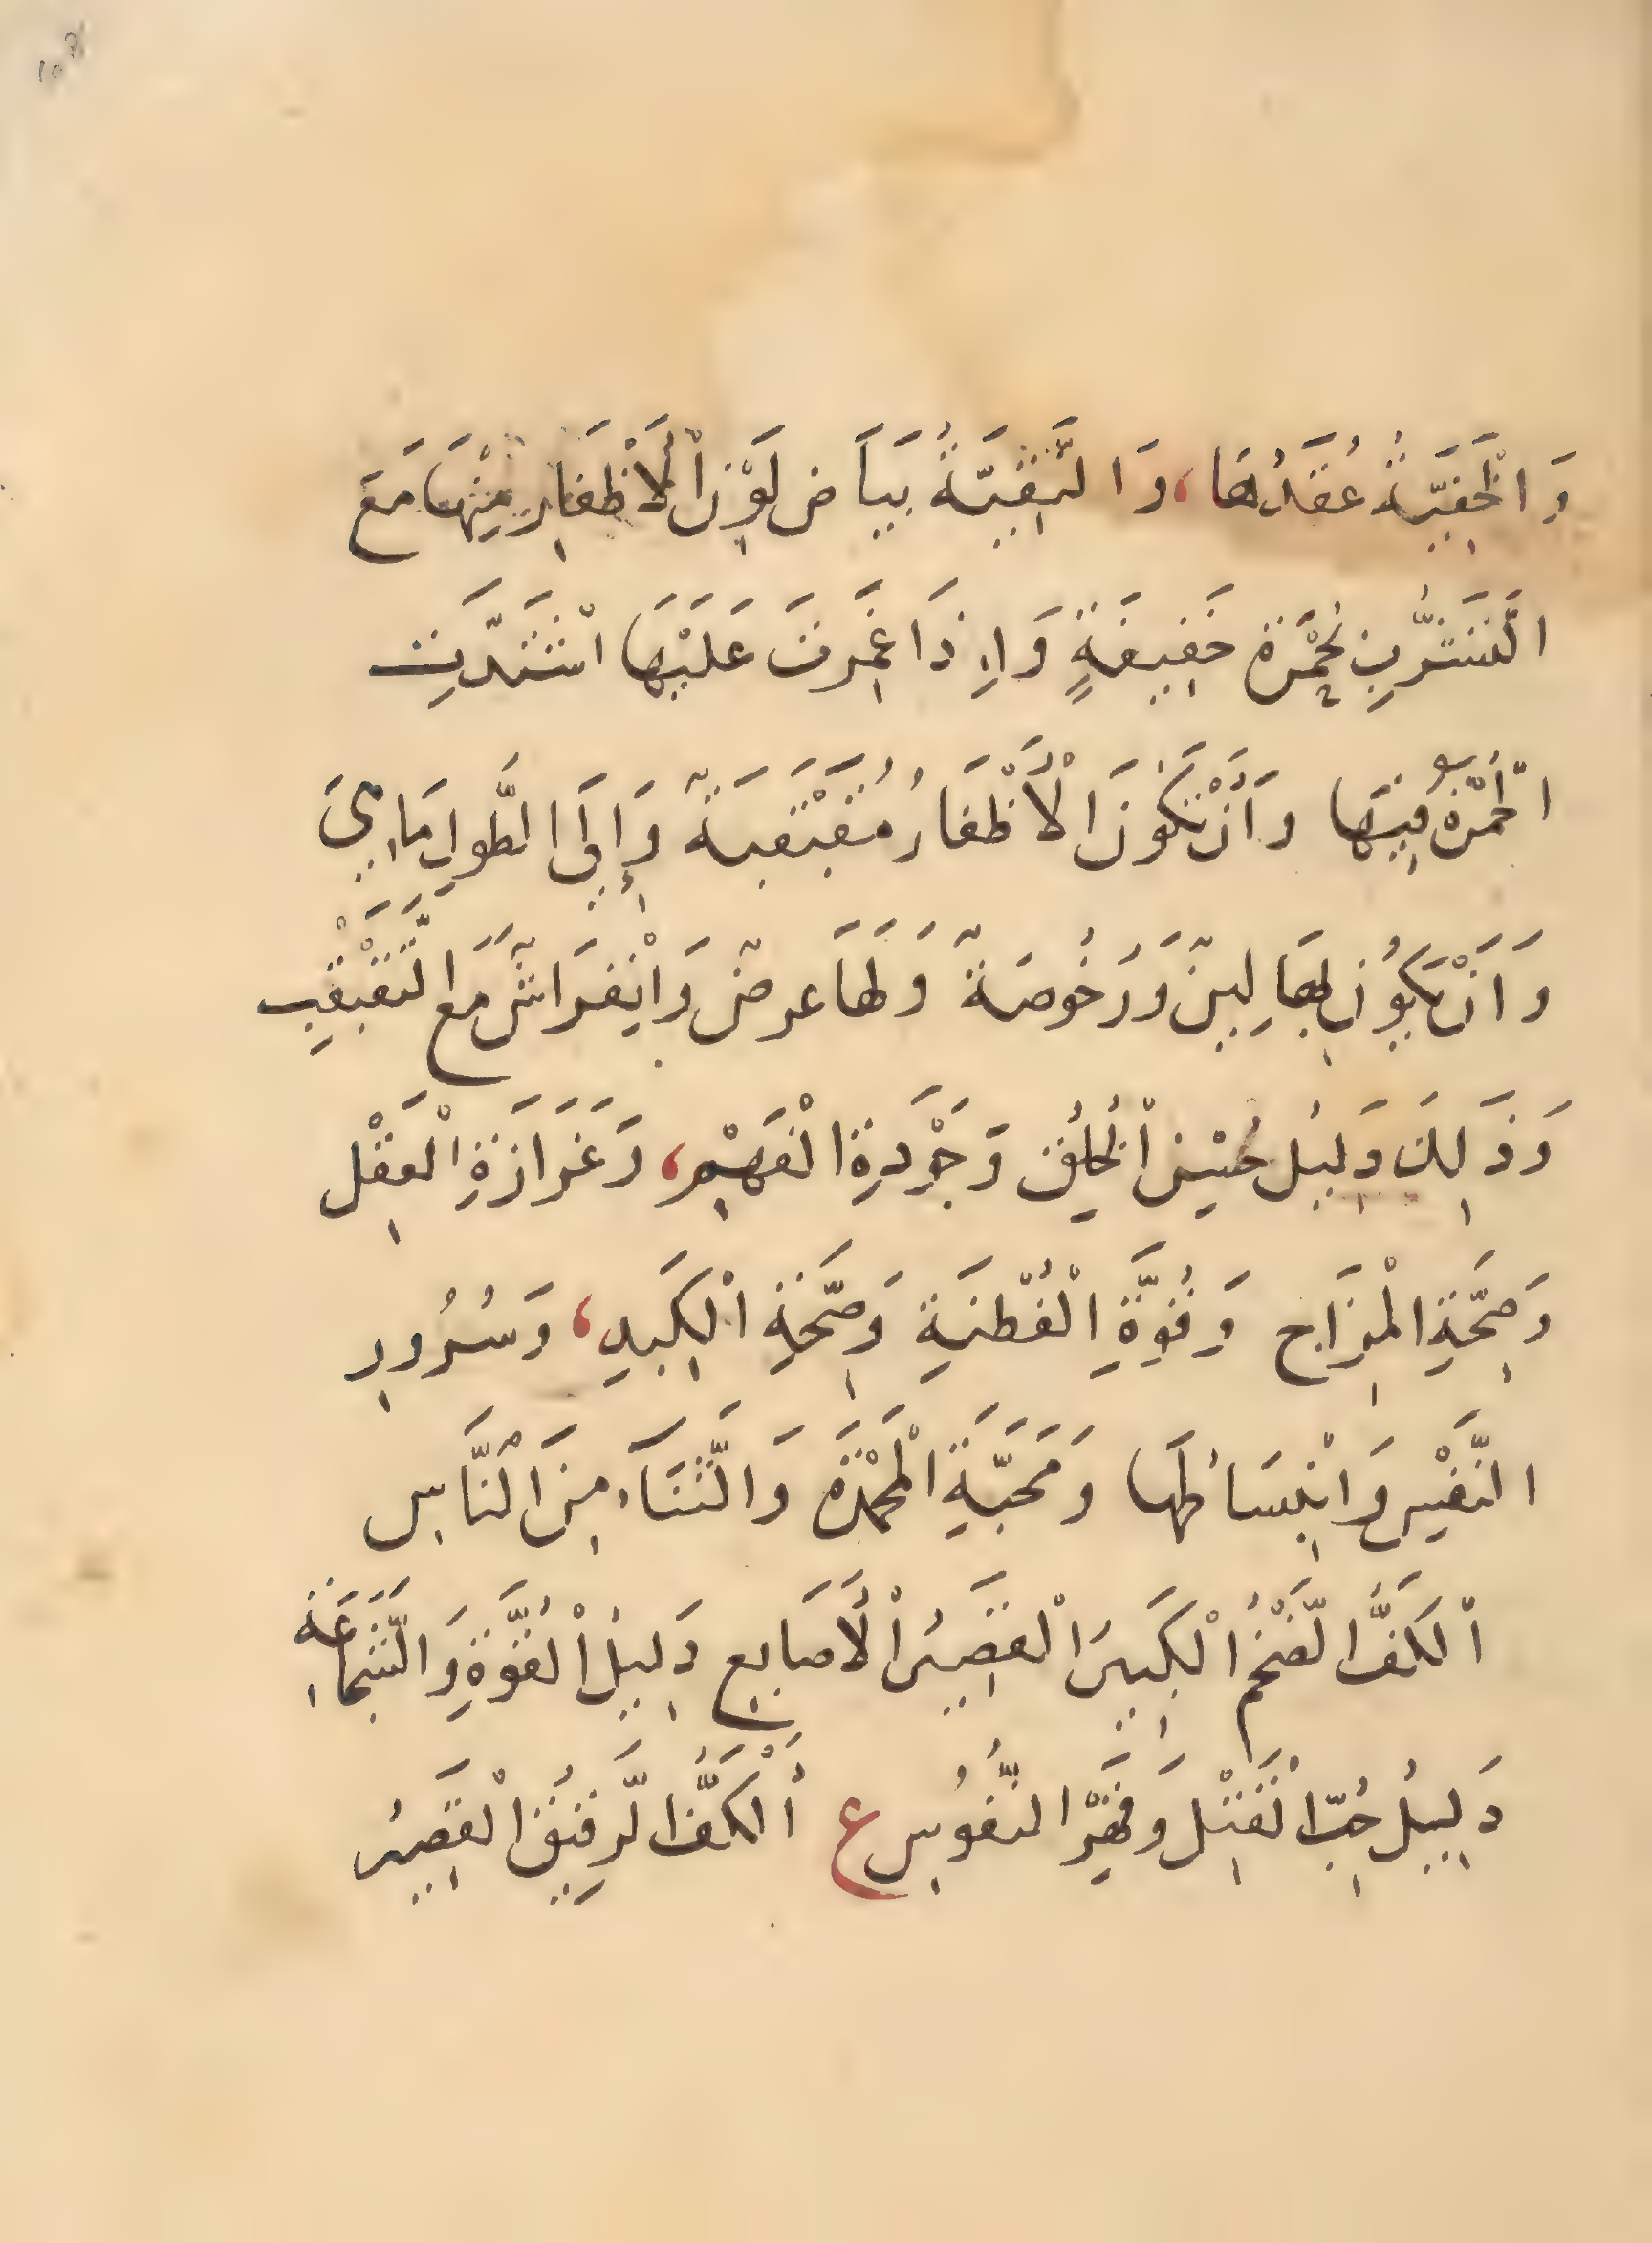 وَالْخَفِيَّةُ عُقَدُهَا، وَالنَّقِيَّةُ بَيَاضِ لَوْنِ الْأَظْفَارِ مِنْهَا مَعَ
التَّشَرُّبِ بِحُمْرَةٍ خَفِيفَةٍ وَإِذَا غُمِزَتْ عَلَيْهَا اشْتَدَّتِ
الْحُمْرَةُ فِيهَا وَأَنْ تَكُونَ الْأَظْفَارُ مُقَبَّبَةً وَإِلَى الطُّولِ مَا هِيَ
وَأَنْ يَكُونَ لَهَا لِينٌ وَرُخُوصَةٌ وَلَهَا عَرْضٌ وَانْفِرَاشٌ مَعَ التَّقْبِيبِ
وَذَلِكَ دَلِيلُ حُسْنِ الْخُلُقِ وَجَوْدَةِ الْفَهْمِ، وَغَزَارَةِ الْعَقْلِ
وَصِحَّةِ الْمِزَاجِ وَقُوَّةِ الْفُطْنَةِ وَصِحَّةِ الْكَبِدِ، وَسُرُورِ
النَّفْسِ وَانْبِسَاطُهَا وَمَحَبَّةِ الْمَحْمَدَةِ وَالثَّنَآءِ مِنَ النَّاسِ
الْكَفُّ الضَّخْمُ الْكَبِيرُ الْقَصِيرُ الْأَصَابِعِ دَلِيلُ الْقُوَّةِ وَالشَّجَاعَةِ
دَلِيلُ حُبِّ الْقَتْلِ وَقَهْرِ النُّفُوسِ ع اَلْكَفُّ الرَّقِيقُ الْقَصِيرُ